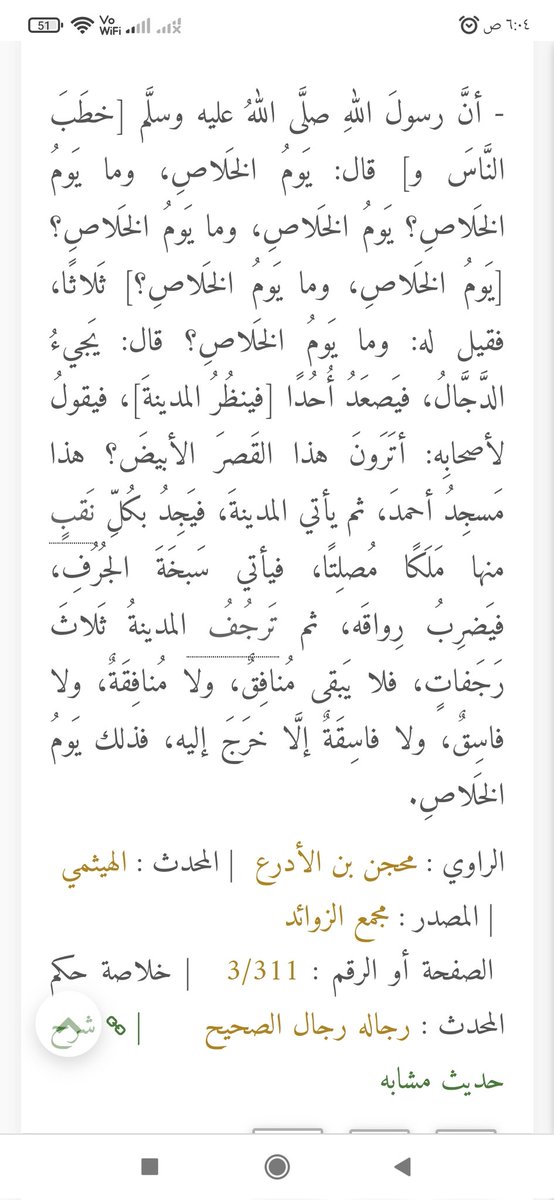 ٦:٠٤ ص
Vo WiFi
51
- أنَّ رسولَ اللهِ صلَّى اللهُ عليه وسلَّم [خطَبَ
النَّاسَ و] قال: يَومُ الخَلاصِ، وما يَومُ
الخَلاصِ؟ يَومُ الخَلاصِ، وما يَومُ الخَلاصِ؟
[يَومُ الخَلاصِ، وما يَومُ الخَلاصِ؟] ثَلاثًا،
فقيل له: وما يَومُ الخَلاصِ؟ قال: يَجيءُ
الدَّجَّالُ، فيَصعَدُ أُحُدًا [فينظُرُ المدينةَ]، فيقولُ
لأصحابِه: أتَرَونَ هذا القَصرَ الأبيضَ؟ هذا
مَسجِدُ أحمدَ، ثم يأتي المدينةَ، فيَجِدُ بكُلِّ نَقبٍ
منها مَلَكًا مُصلِتًا، فيأتي سَبخَةَ الجُرُفِ،
فيَضرِبُ رِواقَه، ثم تَرجُفُ المدينةُ ثَلاثَ
رَجَفاتٍ، فلا يَبقى مُنافِقٌ، ولا مُنافِقَةٌ، ولا
فاسِقٌ، ولا فاسِقَةٌ إلَّا خرَجَ إليه، فذلك يَومُ
الخَلاصِ.
الراوي : محجن بن الأدرع | المحدث : الهيثمي
| المصدر : مجمع الزوائد
الصفحة أو الرقم : 3/311 | خلاصة حكم
المحدث : رجاله رجال الصحيح | شرح
حديث مشابه